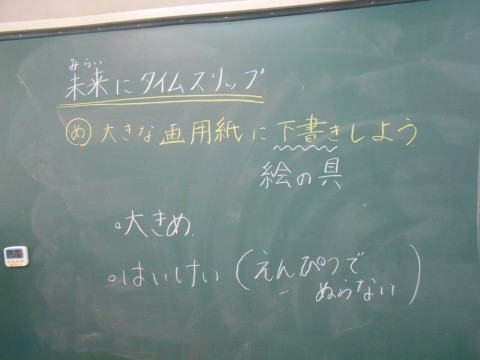 みらい
未来にタイムスリップ
め 大きな画用紙に下書きしよう
絵の具
大きめ
はいけい(えんぴつで
ぬらない)